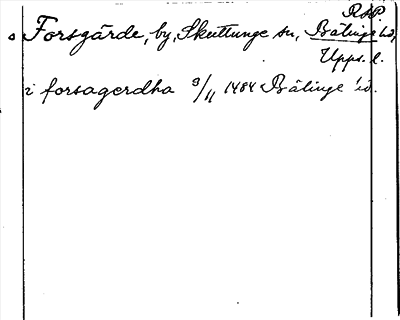 RAP.
o Forsgärde, by, Skuttunge sn, Bälinge hd,
Upps. l.
i forsagerdha 9/11 1484 Bälinge hd.